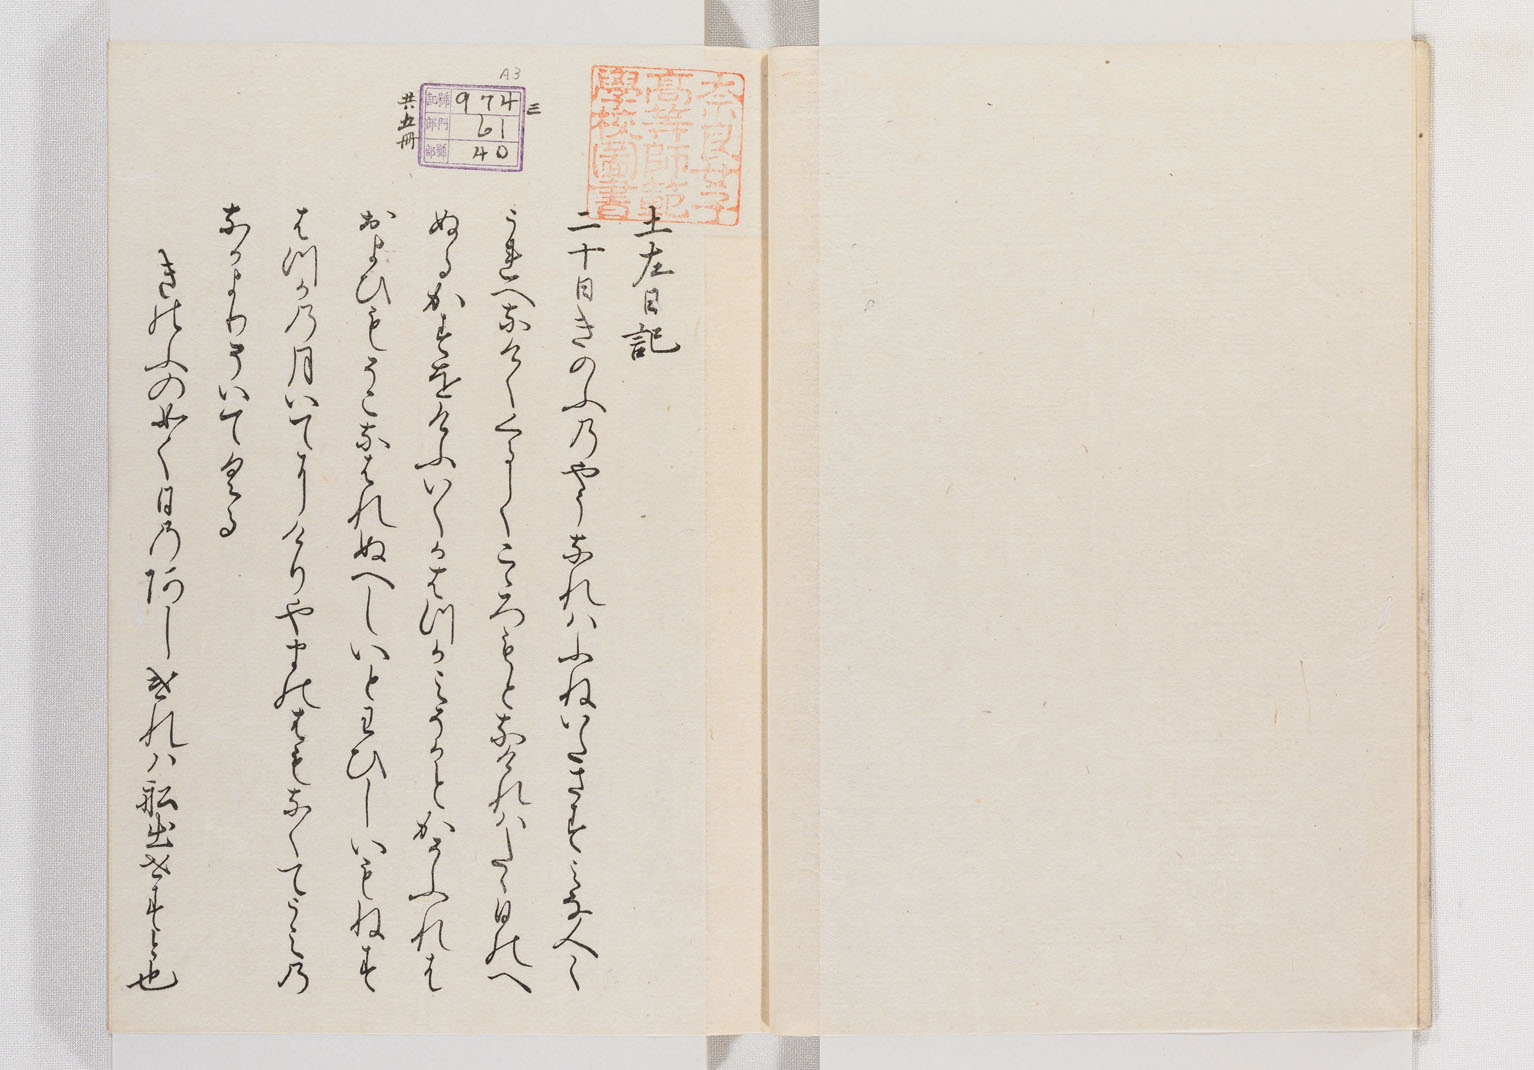 A3
三
記號 974
部門 61
40
共五冊
奈良女子
高等師範
學校圖書
土左日記
二十日きのふ乃やうなれハふねいたさすみな人〱
うれへなけくくるしくこゝろもとなけれハたゝ日のへ
ぬるかすをけふいくかはつかみそかとかそふれは
およひもそこなはれぬへしいとわひしいもねす
はつか乃月いてにけりやまのはもなくてうみ乃
なかよりそいてくる
きのふの如く日乃阿しけれハ船出せすと也